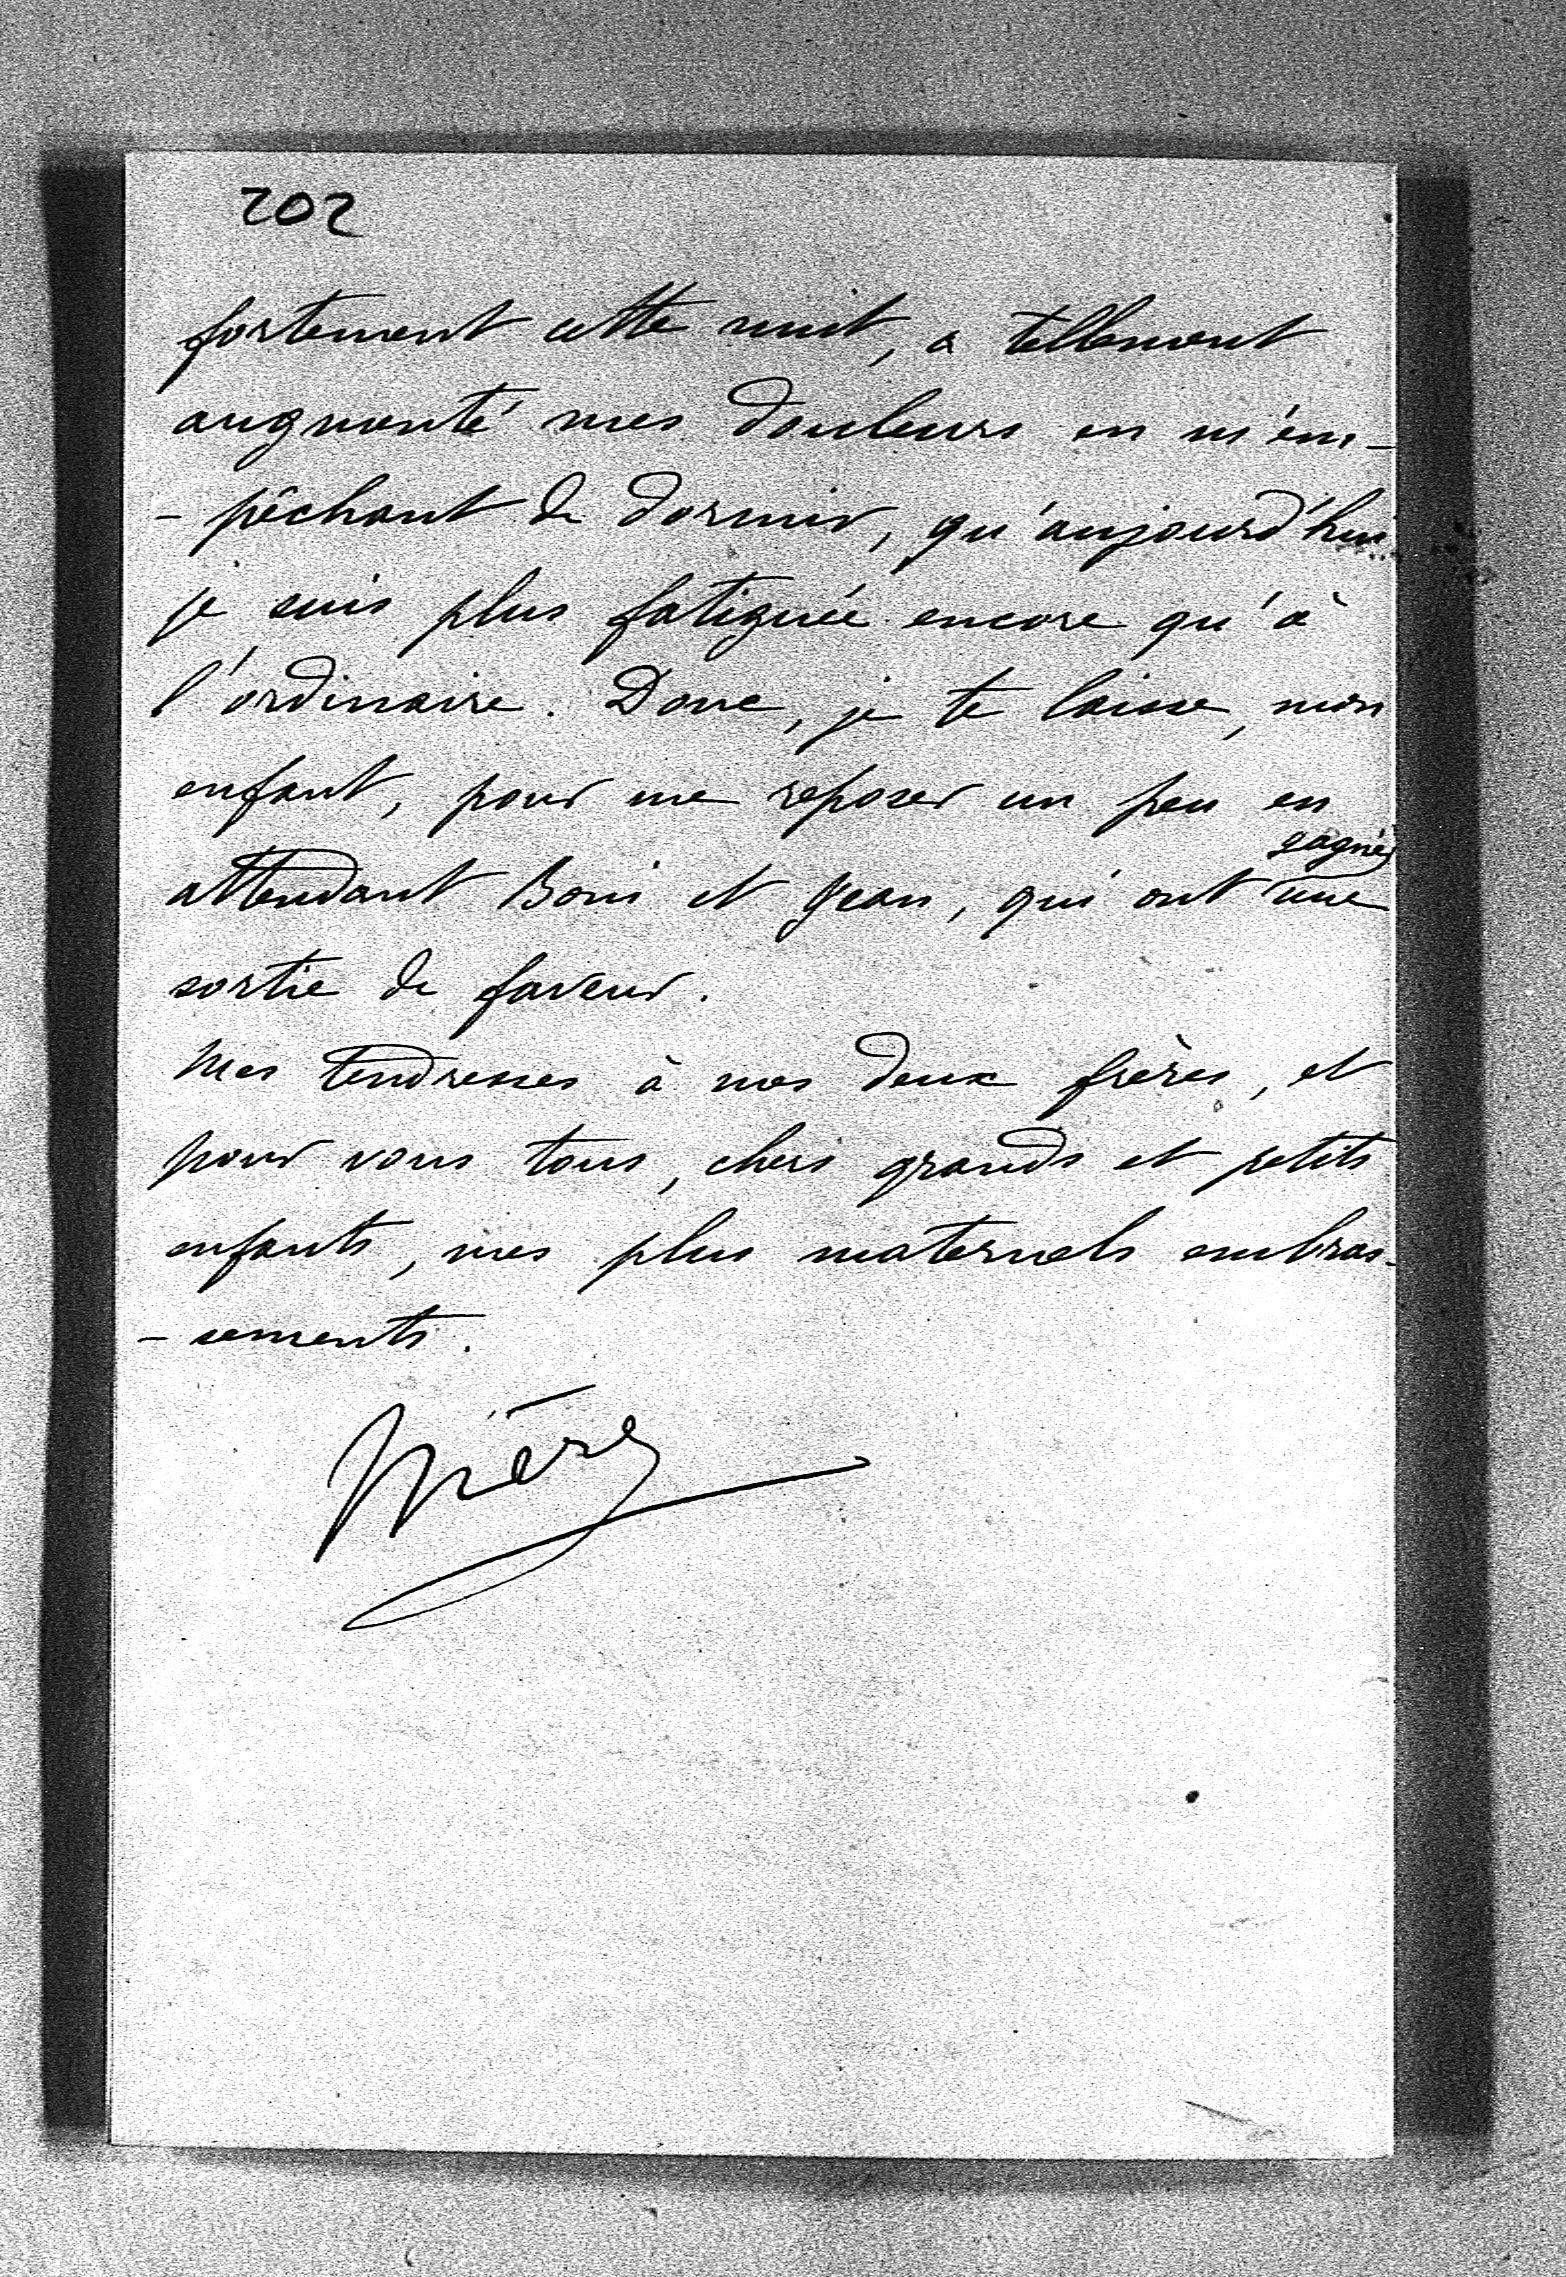 202
fortement cette nuit, a tellement
augmenté mes douleurs en m'em-
- pêchant de dormir, qu'aujourd'hui
je suis plus fatiguée encore qu'à
l'ordinaire. Donc, je te laisse, mon
enfant, pour me reposer un peu en
gagné
attendant Boni et Jean, qui ont une
sortie de faveur.
Mes tendresses à nos deux frères, et
pour vous tous, chers grands et petits
enfants, mes plus maternels embras-
- sements.
Mère